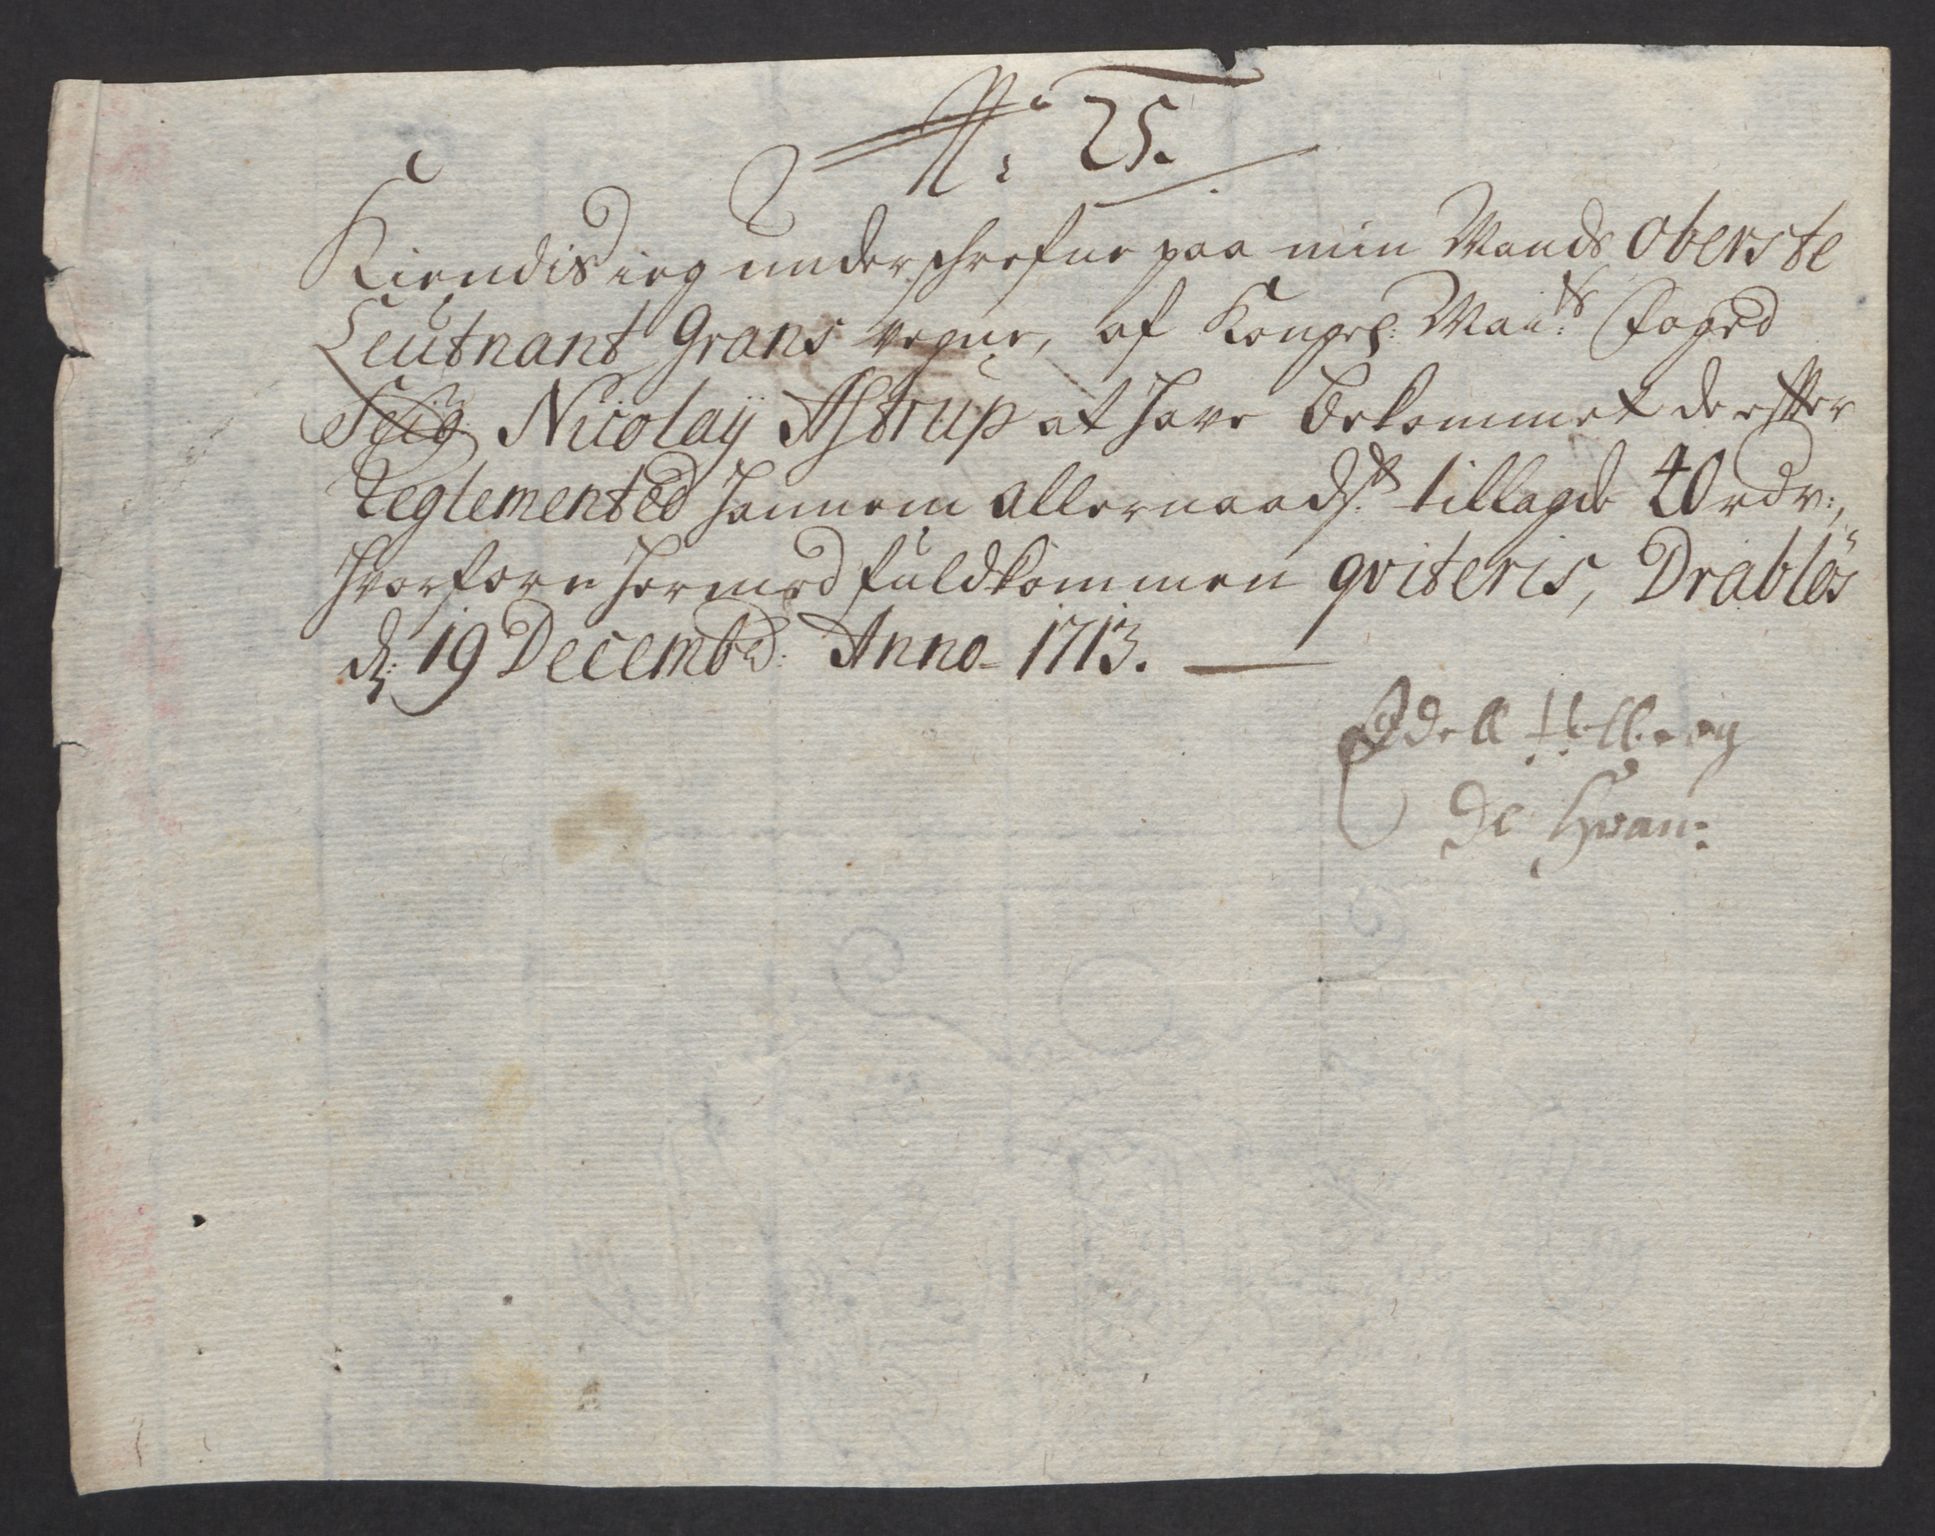 No: 25.
Kiendis ieg underschrefne paa min Mands Oberste
Leutnant Grans vegne, af Kongel: Mai:ts Foged
Seig: Nicolaÿ Astrup at have bekommet de effter
Reglemented hannem allernaadst: tillagde 40 rdr:,
hvorfore hermed fuldkommen qviteris, Drabløs
d: 19 Decembr: Anno 1713.
Edell
De Hvan: